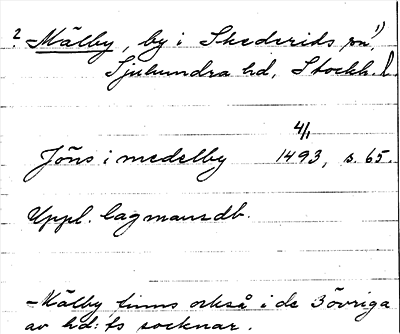 ? Mälby, by i Skederids sn¹⁾,
Sjuhundra hd, Stockh. l.
4/1
Jöns i medelby 1493, s. 65.
Uppl. lagmansdb.
– Mälby finns också i de 3 övriga
av hd:ts socknar.